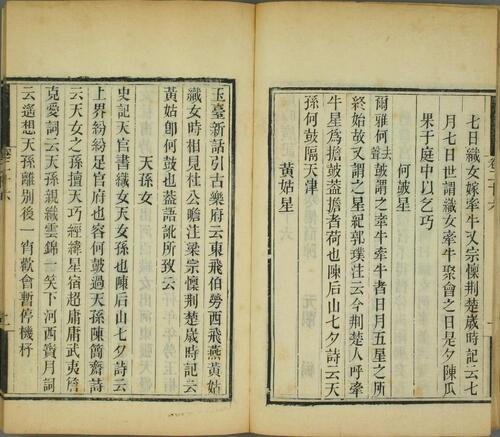 七日織女嫁牽牛又宗懍荆楚歲時記云七
月七日世謂織女牽牛聚會之日是夕陳瓜
果于庭中以乞巧
何鼓星
爾雅何去聲鼓謂之牽牛牽牛者日月五星之所
終始故又謂之星紀郭璞注云今荆楚人呼牽
牛星爲擔鼓蓋擔者荷也陳后山七夕詩云天
孫何鼓隔天津
黄姑星
玉臺新詠引古樂府云東飛伯勞西飛燕黄姑
織女時相見杜公瞻注梁宗懍荆楚歲時記云
黄姑卽何鼓也蓋語訛所致云
天孫女
史記天官書織女天女孫也陳后山七夕詩云
上界紛紛足官府也容何鼓過天孫陳簡齋詩
云天女之孫擅天巧經緯星宿超庸庸武夷詹
克愛詞云天孫親織雲錦一笑下河西賀月詞
云遙想天孫離別後一宵歡會暫停機杼